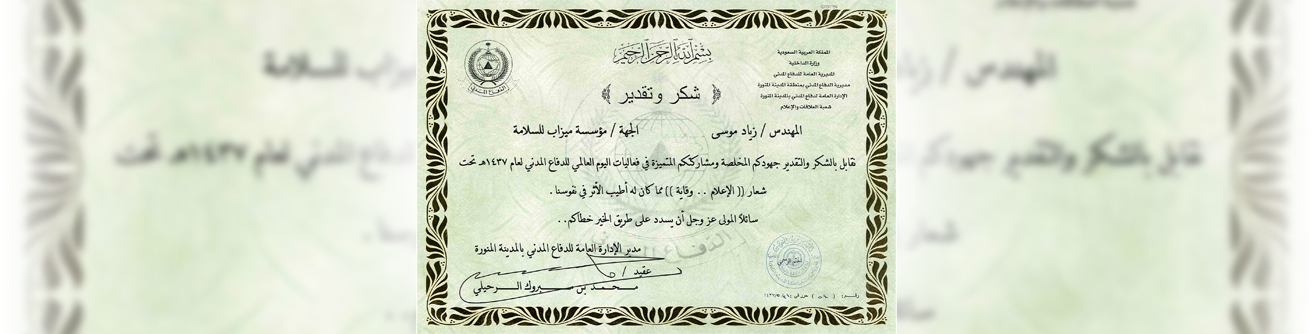 بسم الله الرحمن الرحيم
المملكة العربية السعودية
وزارة الداخلية
المديرية العامة للدفاع المدني
مديرية الدفاع المدني بمنطقة المدينة المنورة
الإدارة العامة للدفاع المدني بالمدينة المنورة
شعبة العلاقات والإعلام
شكر وتقدير
المهندس / زياد موسى الجهة / مؤسسة ميزاب للسلامة
نقابل بالشكر والتقدير جهودكم المخلصة ومشاركتكم المتميزة في فعاليات اليوم العالمي للدفاع المدني لعام ١٤٣٧هـ تحت
شعار (( الإعلام . . وقاية )) مما كان له أطيب الأثر في نفوسنا .
سائلاً المولى عز وجل أن يسدد على طريق الخير خطاكم . .
مدير الإدارة العامة للدفاع المدني بالمدينة المنورة
عقيد /
محمد بن مبروك الرحيلي
الدفاع المدني